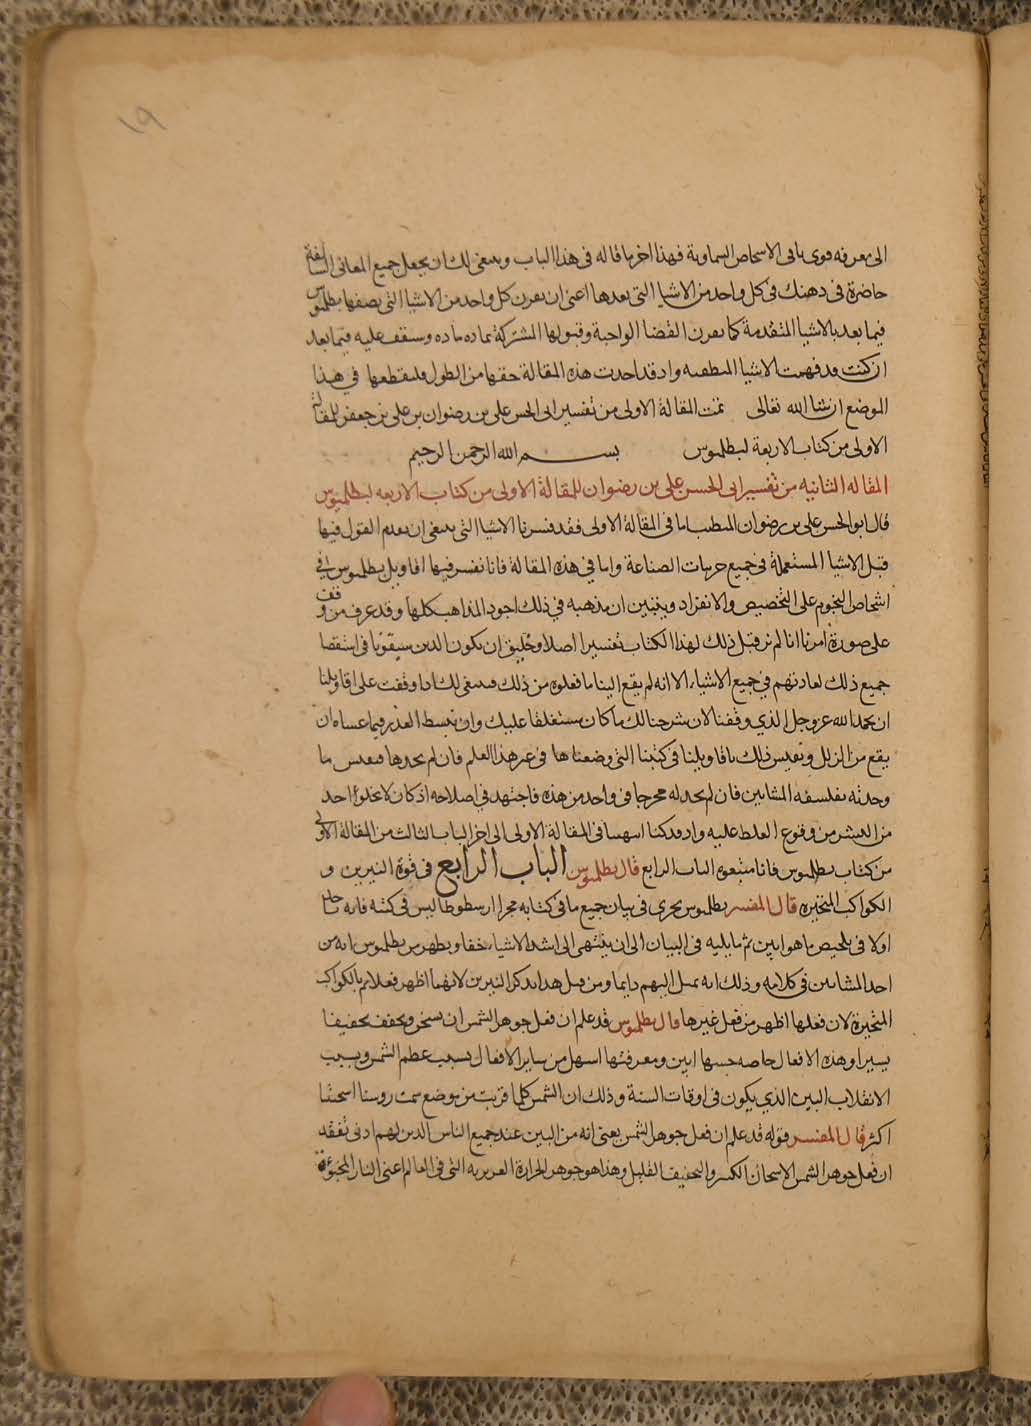 ١٩
الى معرفه قوى باقى الاشخاص السماوية فهذا اخر ما قاله فى هذا الباب وينبغى لك ان تجعل جميع المعانى السالفة
حاضرة فى ذهنك فى كل واحد من الاشيا التى بعدها اعنى ان تقرن كل واحد من الاشيا التى يصفها بطلميوس
فيما بعد بالاشيا المتقدمة كما تقرن القضا الواجبة وقبولها المشتركة بماده ماده وستقف عليه فيما بعد
ان كنت قد فهمت الاشيا المنطقيه واذ قد اخذت هذه المقالة حقها من الطول فلنقطعها فى هذا
الموضع ان شا الله تعالى تمت المقالة الاولى من تفسير ابى الحسن على بن رضوان بن على بن جعفر للمقالة
الاولى من كتاب الاربعة لبطلميوس بسم الله الرحمن الرحيم
المقاله الثانيه من تفسير ابى الحسن على بن رضوان للمقالة الاولى من كتاب الاربعه لبطلميوس
قال ابو الحسن على بن رضوان المتطبب اما فى المقالة الاولى فقد فسرنا الاشيا التى ينبغى ان يقدم القول فيها
قبل الاشيا المستعملة فى جميع جزيات الصناعة واما فى هذه المقالة فانا نفسر فيها اقاويل بطلميوس فى
اشخاص النجوم على التخصيص والانفراد ويتبين ان مذهبه فى ذلك اجود المذاهب كلها وقد عرف من وقف
على صورة امرنا انا لم نر قبل ذلك لهذا الكتاب تفسيرا اصلا وخليق ان يكون الذين سبقونا فى استقصا
جميع ذلك لعادتهم فى جميع الاشياء الا انه لم يقع الينا ما فعلوه من ذلك فينبغى لك اذا وقفت على اقاويلنا
ان تحمد الله عز وجل الذى وفقنا لان شرحنا لك ما كان مستغلقا عليك وان تبسط العذر فيما عساه ان
يقع من الزلل وتقيس ذلك باقاويلنا فى كتبنا التى وضعناها فى غير هذا العلم فان لم تجدها فقس ما
وجدته بفلسفه المشايين فان لم تجد له مخرجا فى واحد من هذه فاجتهد فى اصلاحه اذ كان لا يخلوا احد
من البشر من وقوع الغلط عليه واذ قد كنا انتهينا فى المقالة الاولى الى اخر الباب الثالث من المقالة الاولى
من كتاب بطلميوس فانا متبعوه الباب الرابع قال بطلميوس الباب الرابع فى قوة النيرين و
الكواكب المتحيره قال المفسر بطلميوس يجرى فى بيان جميع ما فى كتابه مجرا ارسطوطاليس فى كتبه فانه
اولا فى تلخيص ما هو ابين ثم ما يليه فى البيان الى ان ينتهى الى اشد الاشياء خفا ويظهر من بطلميوس انه من
احد المشايين فى كلامه وذلك انه يميل اليهم دايما ومن قبل هذا يذكر النيرين لانهما اظهر فعلا ثم بالكواكب
المتحيرة لان فعلها اظهر من فعل غيرها قال بطلميوس قد علم ان فعل جوهر الشمس ان يسخن ويجفف تجفيفا
يسيرا وهذه الافعال خاصه حسها ابين ومعرفتها اسهل من ساير الافعال بسبب عظم الشمس وبسبب
الانقلاب البين الذى يكون فى اوقات السنة وذلك ان الشمس كلما قربت من موضع سمت روسنا اسخنتنا
اكثر قال المفسر قوله قد علم ان فعل جوهر الشمس يعنى انه من البين عند جميع الناس الذين لهم ادنى تفقد
ان فعل جوهر الشمس الاسخان الكثير والتجفيف القليل وهذا هو جوهر الحرارة الغريزيه التى فى العالم اعنى النار